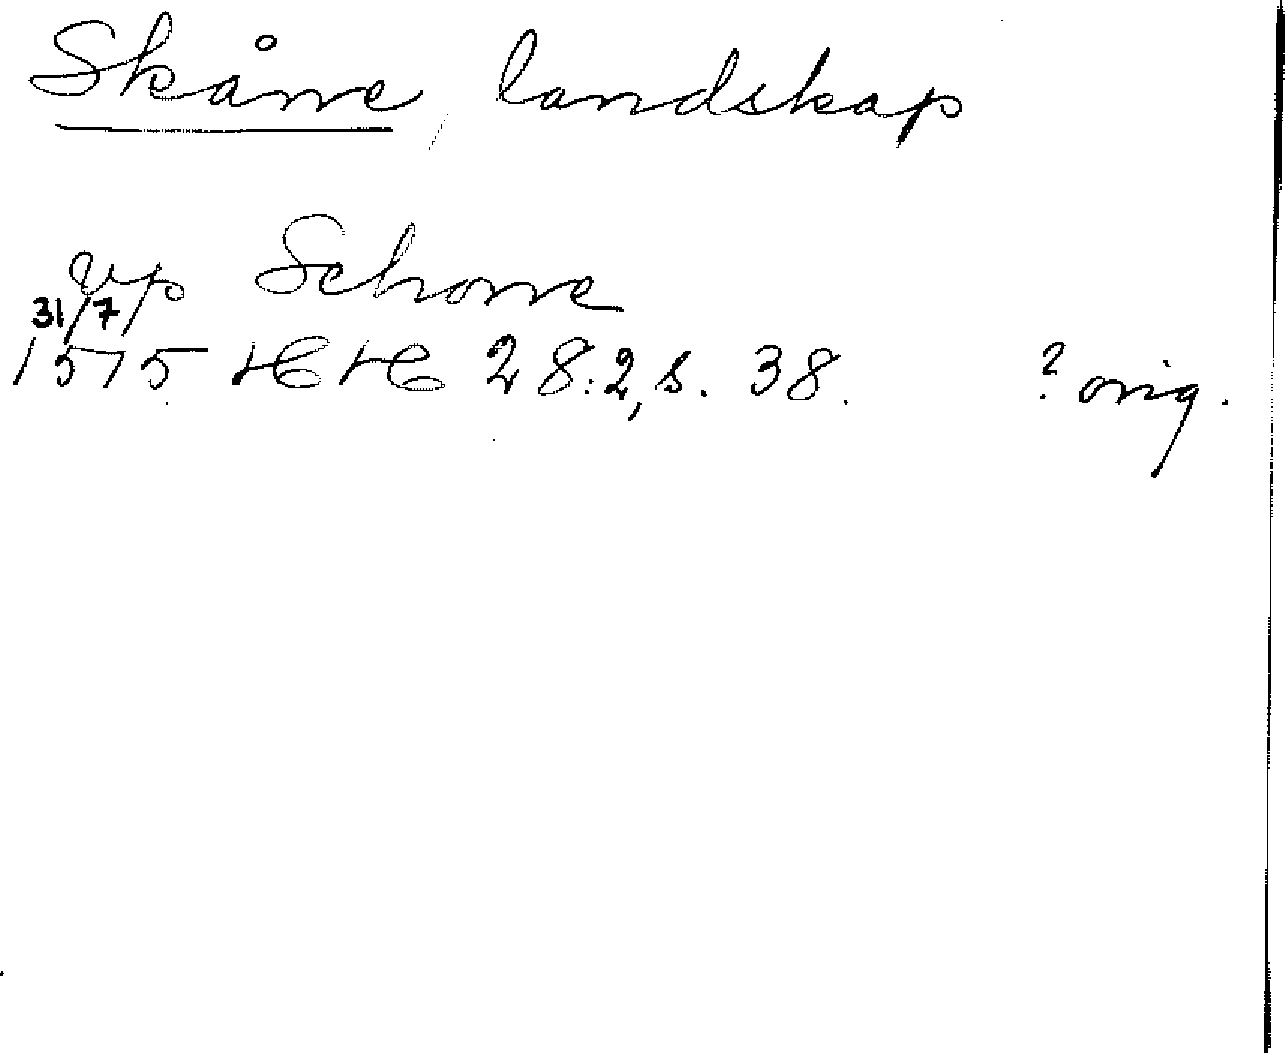 Skåne, landskap
up Schone
31/7
1575 HH 28:2, s. 38. ? orig.